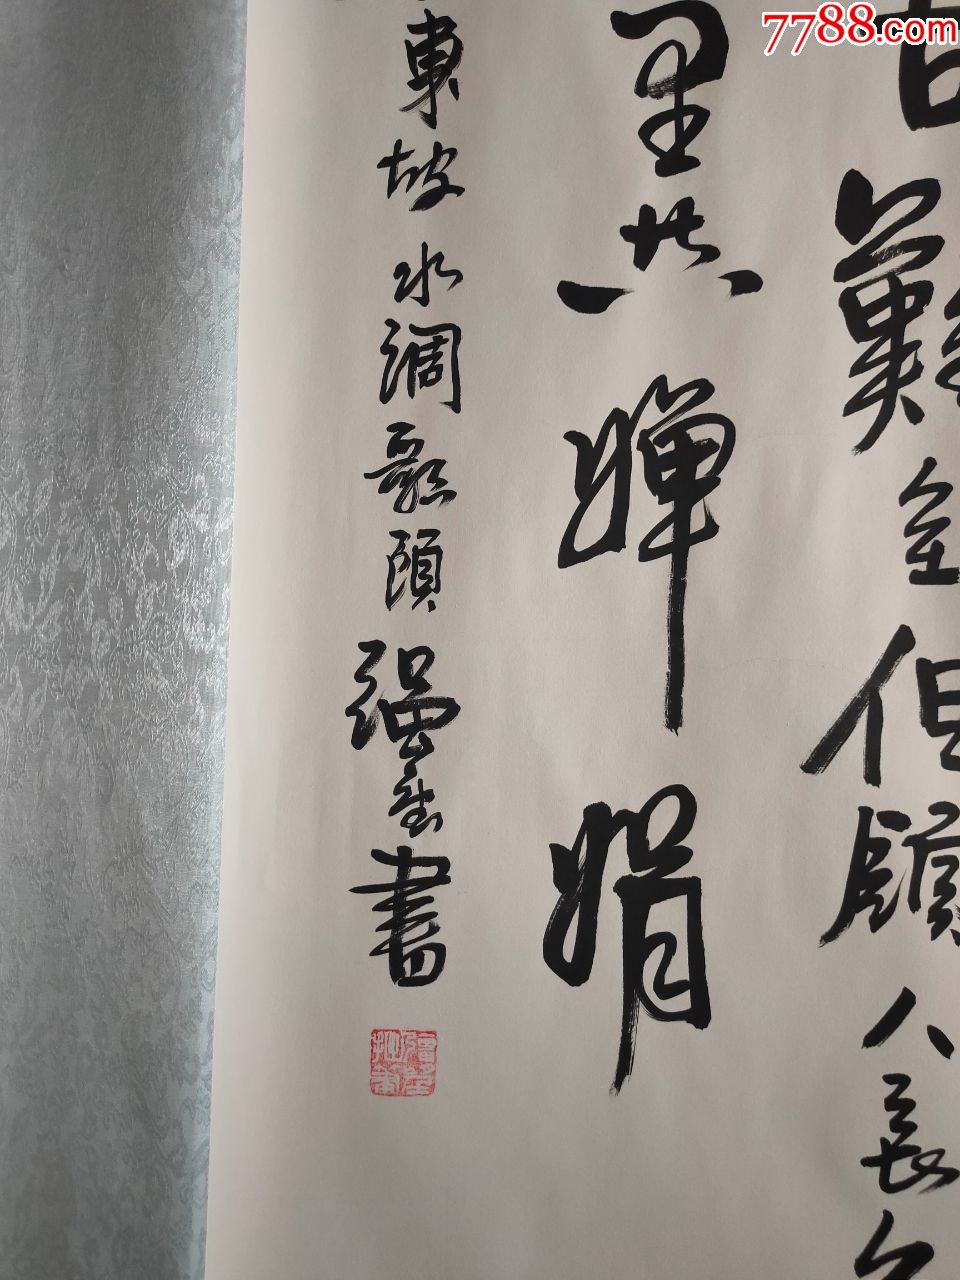 7788.com
古難全但願人長久
里共嬋娟
東坡水調歌頭強書